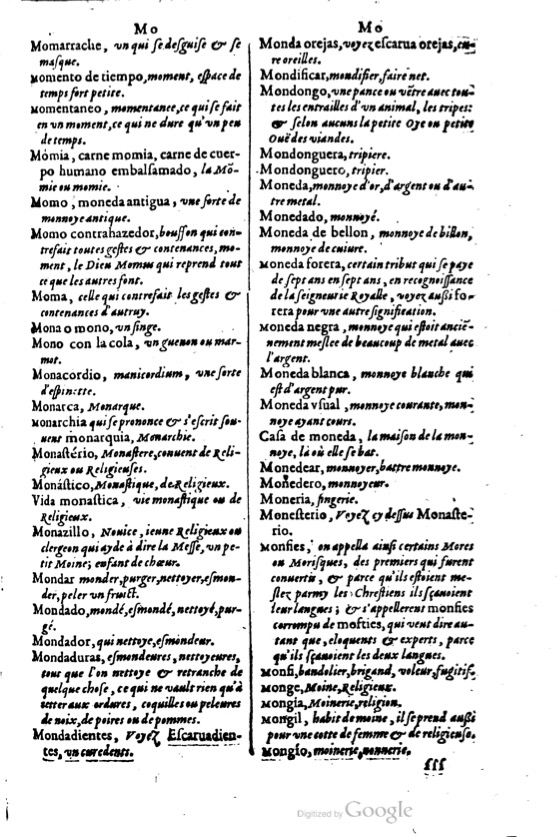 Mo
Momarrache, vn qui se desguise & se
masque.
Momento de tiempo, moment, espace de
temps fort petite.
Momentaneo, momentanee, ce qui se fait
en vn moment, ce qui ne dure qu'vn peu
de temps.
Mómia, carne momia, carne de cuer-
po humano embalsamado, la Mō-
mie ou momie.
Momo, moneda antigua, vne sorte de
monnoye antique.
Momo contrahazedor, bouffon qui con-
trefait toutes gestes & contenances, mo-
ment, le Dieu Momus qui reprend tout
ce que les autres font.
Moma, celle qui contrefait les gestes &
contenances d'autruy.
Mona o mono, vn singe.
Mono con la cola, vn guenon ou mar-
mot.
Monacordio, manicordium, vne sorte
d'espinette.
Monarca, Monarque.
Monarchia qui se prononce & s'escrit sou-
uent monarquia, Monarchie.
Monastério, Monastere, conuent de Reli-
gieux ou Religieuses.
Monástico, Monastique, de Religieux.
Vida monastica, vie monastique ou de
Religieux.
Monazillo, Nouice, ieune Religieux ou
clergeon qui ayde à dire la Messe, vn pe-
tit Moine; enfant de chœur.
Mondar monder, purger, nettoyer, esmon-
der, peler vn fruict.
Mondado, mondé, esmondé, nettoyé, pur-
gé.
Mondador, qui nettoye, esmondeur.
Mondaduras, esmondeures, nettoyeures,
tout que l'on nettoye & retranche de
quelque chose, ce qui ne vault rien qu'à
ietter aux ordures, coquilles ou peleures
de noix, de poires ou de pommes.
Mondadientes, Voyez Escaruadien-
tes, vn curedents.
Mo
Monda orejas, voyez escarua orejas, cu-
re oreilles.
Mondificar, mondifier, faire net.
Mondongo, vne pance ou vẽtre auec tou-
tes les entrailles d'vn animal, les tripes:
& selon aucuns la petite Oye ou petite
Ouë des viandes.
Mondonguera, tripiere.
Mondonguero, tripier.
Moneda, monnoye d'or, d'argent ou d'au-
tre metal.
Monedado, monnoyé.
Moneda de bellon, monnoye de billon,
monnoye de cuiure.
Moneda forera, certain tribut qui se paye
de sept ans en sept ans, en recognoissance
de la seigneurie Royalle, voyez außi fo-
rera pour vne autre signification.
Moneda negra, monnoye qui estoit anciē-
nement meslee de beaucoup de metal auec
l'argent.
Moneda blanca, monnoye blanche qui
est d'argent pur.
Moneda vsual, monnoye courante, mon-
noye ayant cours.
Casa de moneda, la maison de la mon-
noye, là où elle se bat.
Monedear, monnoyer, battre monnoye.
Monedero, monnoyeur.
Moneria, singerie.
Monesterio, Voyez cy dessus Monaste-
rio.
Monfies, on appella ainsi certains Mores
ou Morisques, des premiers qui furent
conuertis, & parce qu'ils estoient me-
slez parmy les Chrestiens ils sçauoient
leur langues; & s'appellerent monfies
corrompu de mofties, qui vent dire au-
tant que, eloquents & experts, parce
qu'ils sçauoient les deux langues.
Monfi, bandolier, brigand, voleur, fugitif.
Monge, Moine, Religieux.
Mongia, Moinerie, religion.
Mongil, habit de moine, il se prend außi
pour vne cotte de femme & de religieuse.
Mongio, moinerie, nonnerie.
sss
Digitized by Google